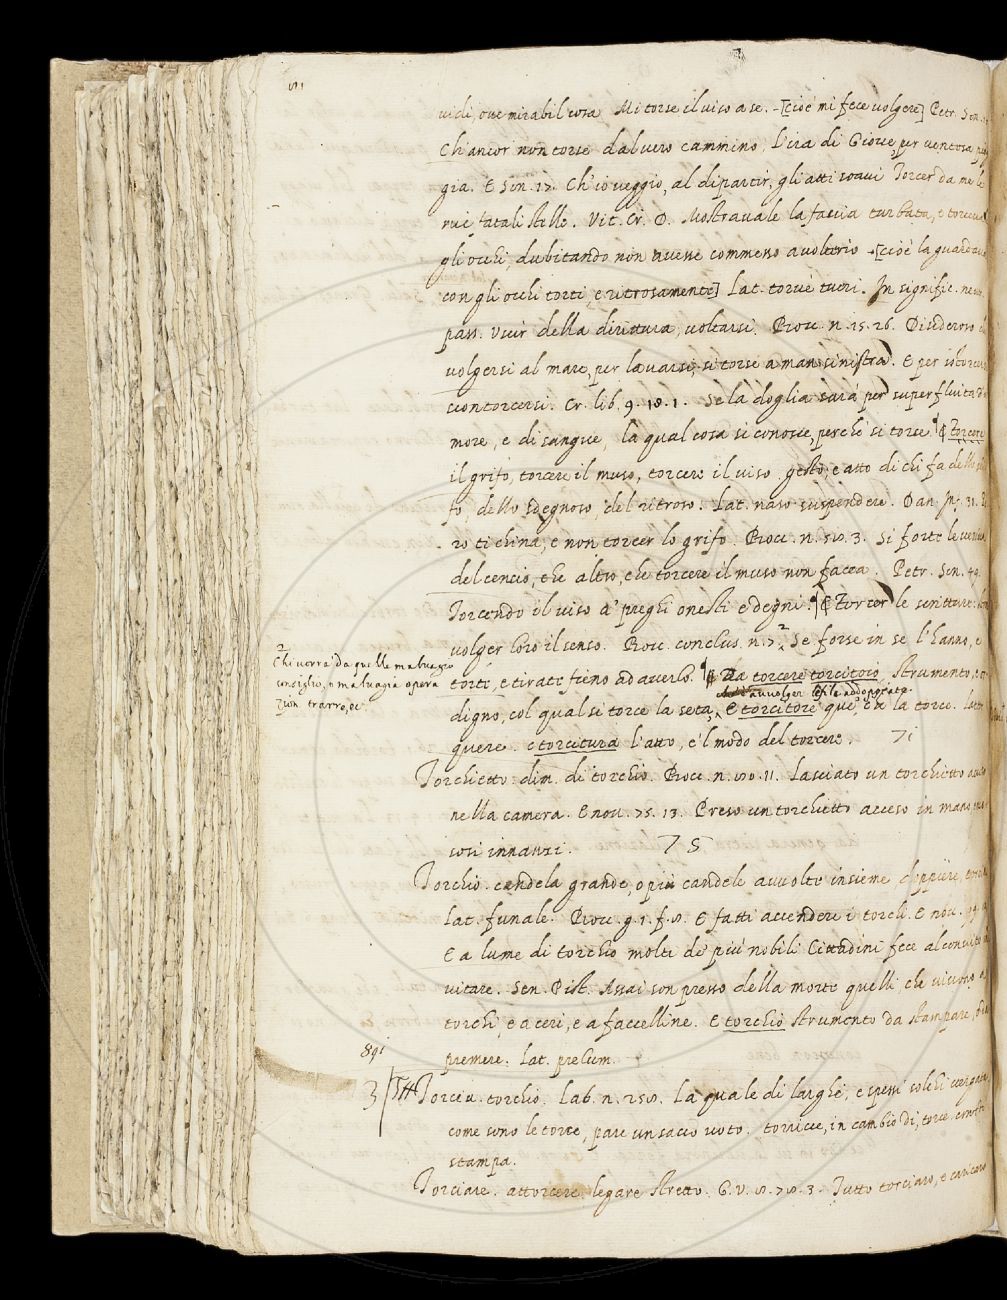 vidi, ove mirabil cosa Mi torse il viso a se. -[cioè mi fece volgere] Petr. Son.
Ch'ancor non torse dal vero cammino, L'ira di Giove, per ventosa
gia. E Son. 17. Ch'io veggio, al dipartir, gli atti soavi Torcer da me le
mie fatali stelle. Vit. Cr. D. Mostravale la faccia turbata, e torceva
gli occhi, dubitando non avesse commesso avolterio -[cioè la guardava
con gli occhi torti, e ritrosamente] Lat. torve tueri. In signific. neut.
pass. Uscir della dirittura, voltarsi. Bocc. n. 15. 26. Disideroso di
volgersi al mare, per lavarsi, si torse a man sinistra. E per istorcere
scontorcersi. Cr. lib. 9. 18. 1. Se la doglia sarà per superfluità d'u
more, e di sangue, la qual cosa si conosce, perchè si torce ¶ Torcere
il grifo, torcere il muso, torcere il viso gesto, e atto di chi fa dello
fo, dello sdegnoso, del ritroso. Lat. naso suspendere. Dan. Inf. 31. Pe
ro ti china, e non torcer lo grifo. Bocc. n. 50. 3. Si forte le veniva
del cencio, che altro, che torcere il muso non facea. Petr. Son.
Torcendo il viso a' preghi onesti e degni. ¶ Torcer le scritture
volger loro il senso. Bocc. conclus. n. 7. 2 Se forse in se l'hanno, e
torte, e tirate fieno ad averlo. ¶ Da torcere torcitoio Strumento,
2
Chi vorrà da quelle malvagio
consiglio, o malvagia opera
zion trarre, ec
ad avvolger le addoppiate.
digno, col qual si torce la seta, E torcitore que', c'a la torce.
quere. e torcitura l'atto, e'l modo del torcere. 71
Torchietto. dim. di torchio. Bocc. n. 80. 11. Lasciato un torchietto acceso
nella camera. E nov. 75. 13. Preso un torchietto acceso in mano,
così innanzi. 75
Torchio. candela grande, o più candele avvolte insieme doppiere,
Lat. funale. Bocc. g. 1. f. 8. E fatti accendere i torchi. E nov.
E a lume di torchio molti de' più nobili Cittadini fece al convito
vitare. Sen. Pist. Assai son presso della morte quelli, che vivono
torchi, e a ceri, e a faccelline. E torchio strumento da stampare,
premere. Lat. prelum.
Torcia. torchio. Lab. n. 258. La quale di larghi, e spessi solchi vergata,
come sono le torce, pare un sacco voto. torricce, in cambio di, torce
stampa.
Torciare. attorcere, legare stretto. G. V. 8. 78. 3. Tutto torciaro, e caricaro